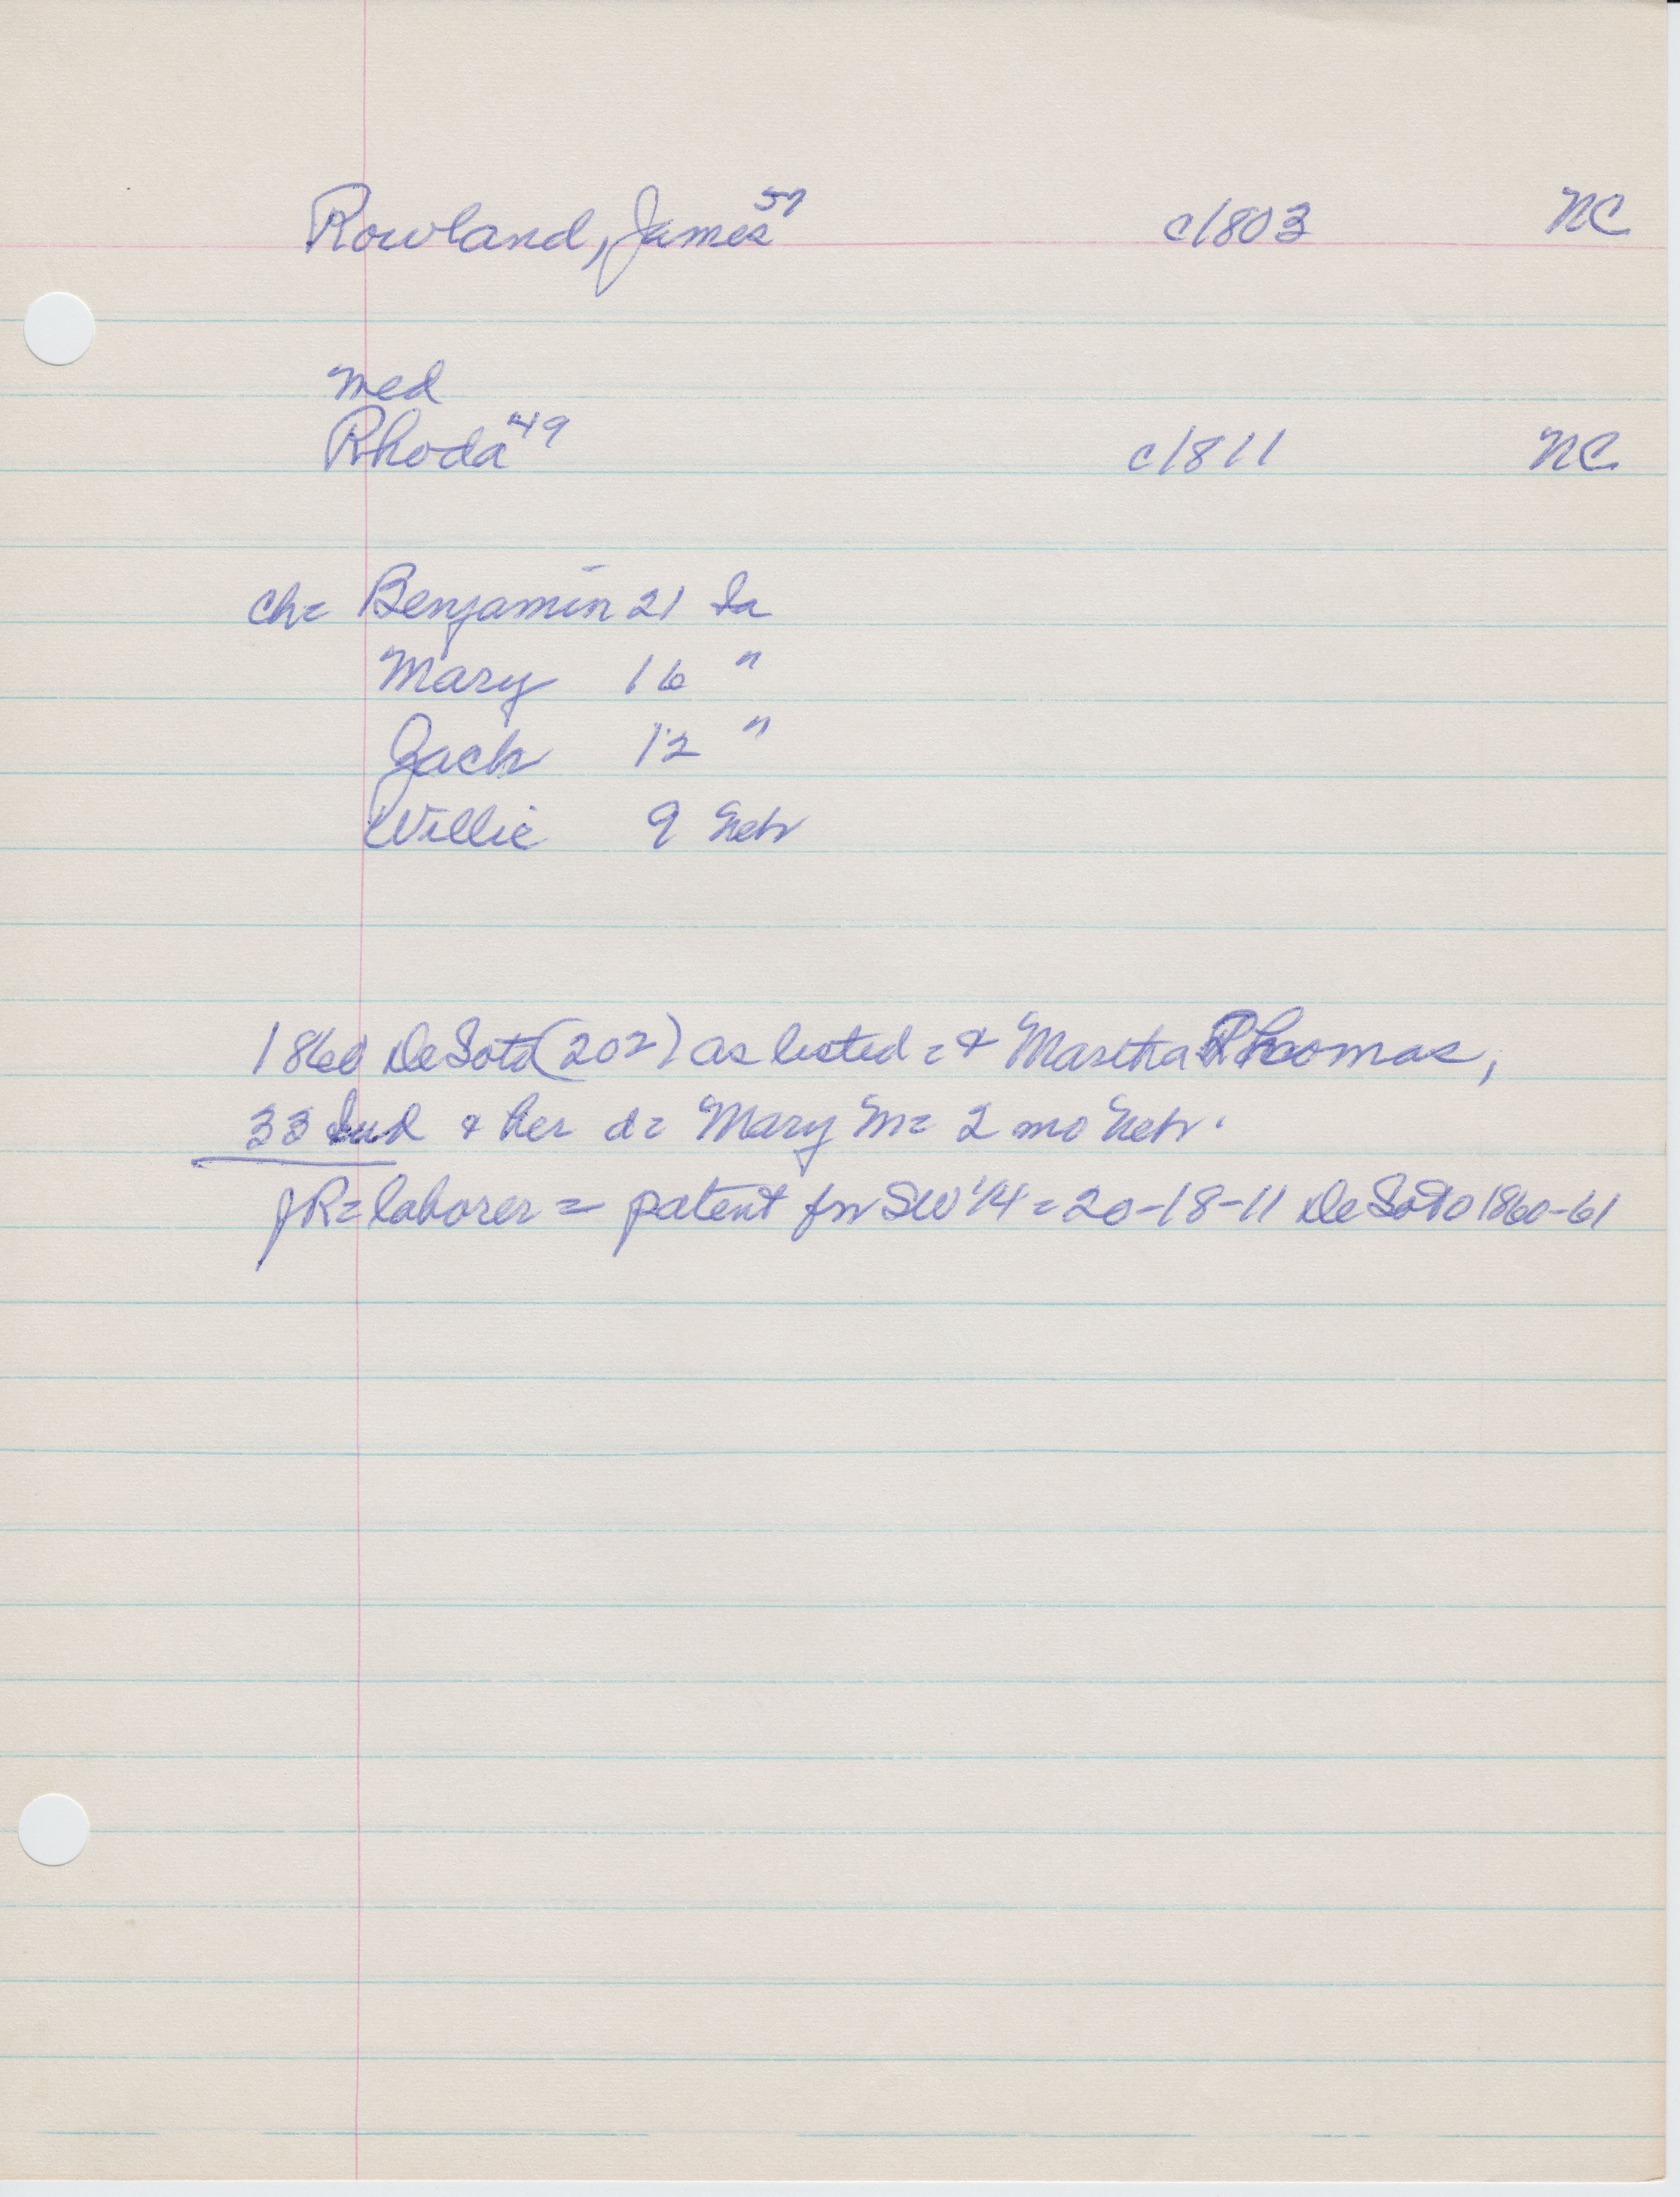 Rowland, James 57 c1803 NC
med
Rhoda 49 c1811 NC
ch= Benjamin 21 Ia
Mary 16 "
Zach 12 "
Willie 9 Neb
1860 DeSoto (202) as listed = & Martha Thomas,
33 Ind & her d= Mary M= 2 mo Neb.
JR= laborer = patent for SW 1/4 = 20-18-11 DeSoto 1860-61